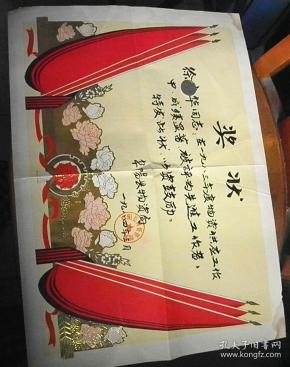 奖状
徐 华同志：在一九八三年度物资状态工作
中，成绩显著，被评为先进工作者，
特发此状，以资鼓励。
物资局
一九八四年三月
孔夫子旧书网